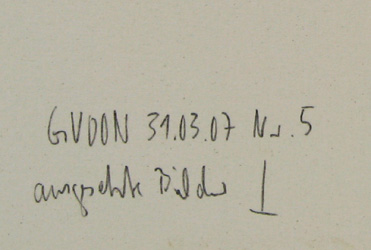 GVOON 31.03.07 Nr. 5
ausgesuchte Bilder